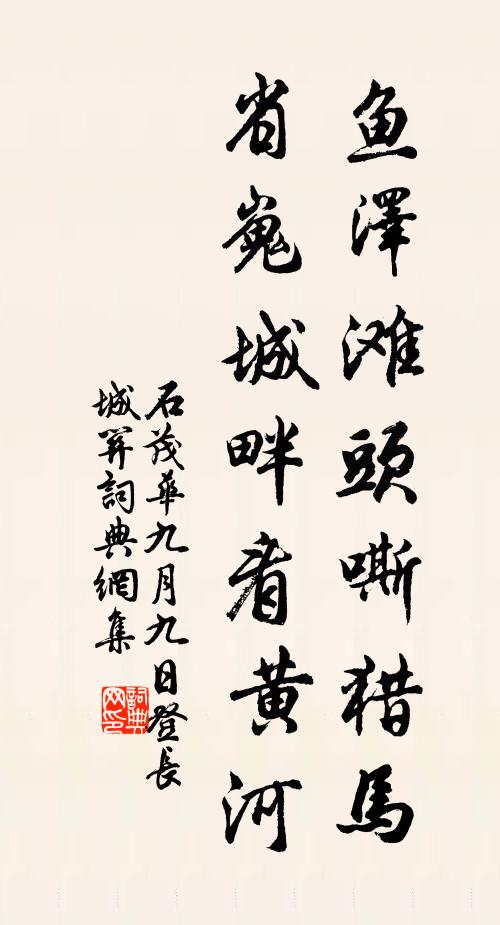 鱼澤滩頭嘶猎馬
省嵬城畔看黄河
石茂華九月九日登長
城関詞典網集
詞典
网印